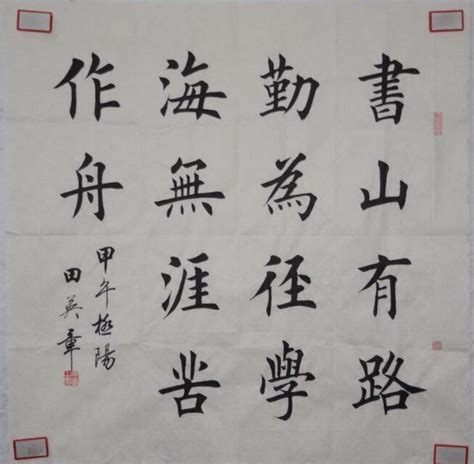 書山有路
勤為徑學
海無涯苦
作舟
甲午極陽
田英章